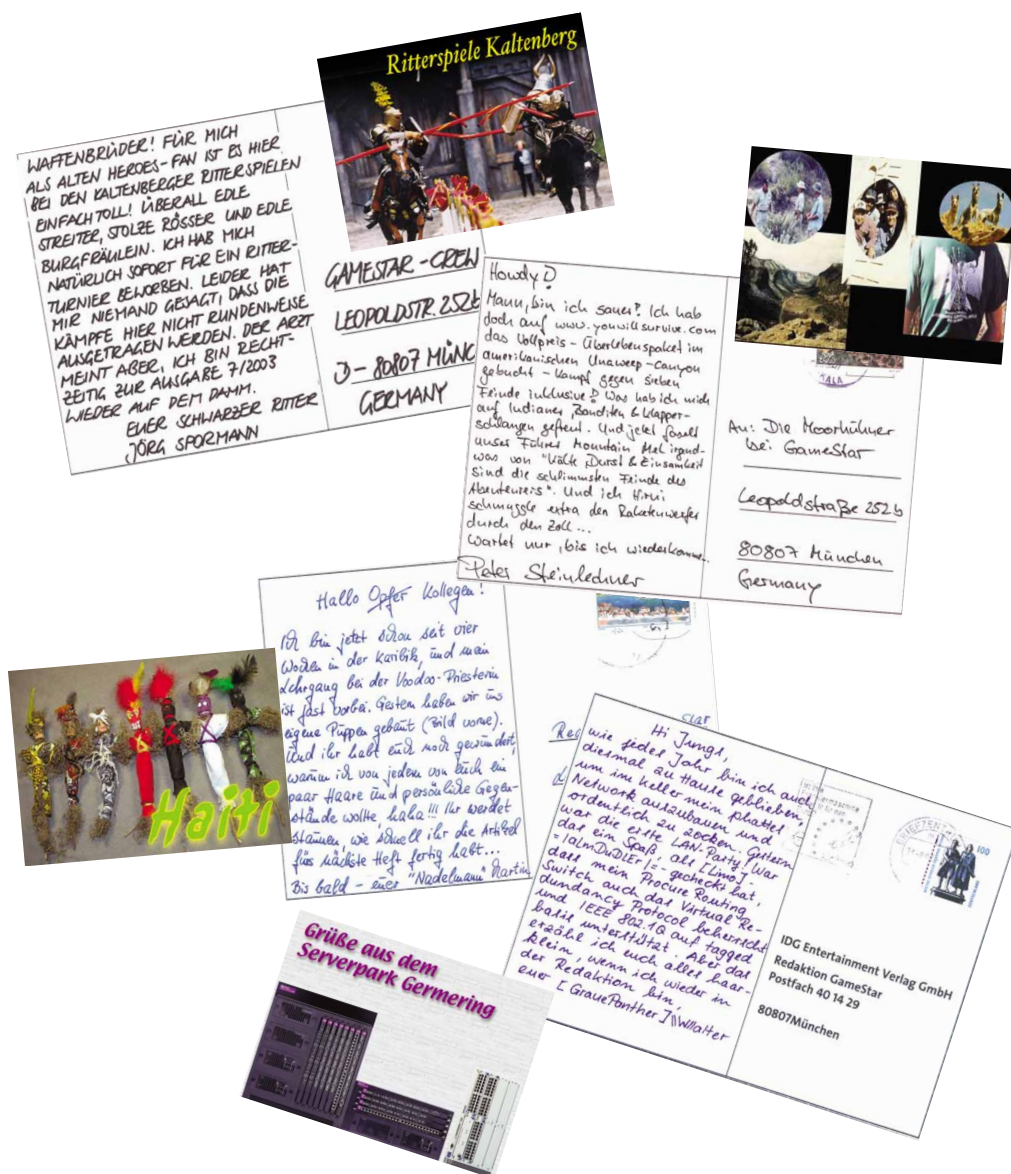 Ritterspiele Kaltenberg
WAFFENBRÜDER! FÜR MICH
ALS ALTEN HEROES-FAN IST ES HIER
BEI DEN KALTENBERGER RITTERSPIELEN
EINFACH TOLL! ÜBERALL EDLE
STREITER, STOLZE RÖSSER UND EDLE
BURGFRÄULEIN. ICH HAB MICH
NATÜRLICH SOFORT FÜR EIN RITTER-
TURNIER BEWORBEN. LEIDER HAT
MIR NIEMAND GESAGT, DASS DIE
KÄMPFE HIER NICHT RUNDENWEISE
AUSGETRAGEN WERDEN. DER ARZT
MEINT ABER, ICH BIN RECHT-
ZEITIG ZUR AUSGABE 7/2003
WIEDER AUF DEM DAMM.
EUER SCHWARZER RITTER
JÖRG SPORMANN
GAMESTAR-CREW
LEOPOLDSTR. 252b
D-80807 MÜNC
GERMANY
Howdy!
Mann, bin ich sauer! Ich hab
doch auf www.youwillsurvive.com
das Vollpreis-Überlebenspaket im
amerikanischen Unaweep-Canyon
gebucht - Kampf gegen sieben
Feinde inklusive! Was hab ich mich
auf Indianer, Banditen & Klapper-
schlangen gefreut. Und jetzt faselt
unser Führer Mountain Mel irgend-
was von "Kälte, Durst & Einsamkeit
sind die schlimmsten Feinde des
Abenteurers". Und ich Hirni
schmuggle extra den Raketenwerfer
durch den Zoll...
Wartet nur, bis ich wiederkomme.
Peter Steinlechner
An: Die Moorhühner
bei GameStar
Leopoldstraße 252b
80807 München
Germany
Hallo Opfer Kollegen!
Ich bin jetzt schon seit vier
Wochen in der Karibik, und mein
Lehrgang bei der Voodoo-Priesterin
ist fast vorbei. Gestern haben wir uns
eigene Puppen gebaut (Bild vorne).
Und ihr habt euch noch gewundert,
warum ich von jedem von euch ein
paar Haare und persönliche Gegen-
stände wollte, haha!!! Ihr werdet
staunen, wie schnell ihr die Artikel
fürs nächste Heft fertig habt...
Bis bald - euer "Nadelmann" Martin
Haiti
Hi Jungs,
wie jedes Jahr bin ich auch
diesmal zu Hause geblieben,
um im Keller mein phattes
Network auszubauen und
ordentlich zu zocken. Gestern
war die erste LAN-Party. War
das ein Spaß, als [Limo]-
gecheckt hat,
dass mein Procure Routing
Switch auch das Virtual Re-
dundancy Protocol beherrscht
und IEEE 802.1Q auf tagged
basis unterstützt. Aber das
erzähl ich euch alles haar-
klein, wenn ich wieder in
der Redaktion bin,
euer [GrauePanther]
100
IDG Entertainment Verlag GmbH
Redaktion GameStar
Postfach 40 14 29
80807München
Grüße aus dem
Serverpark Germering